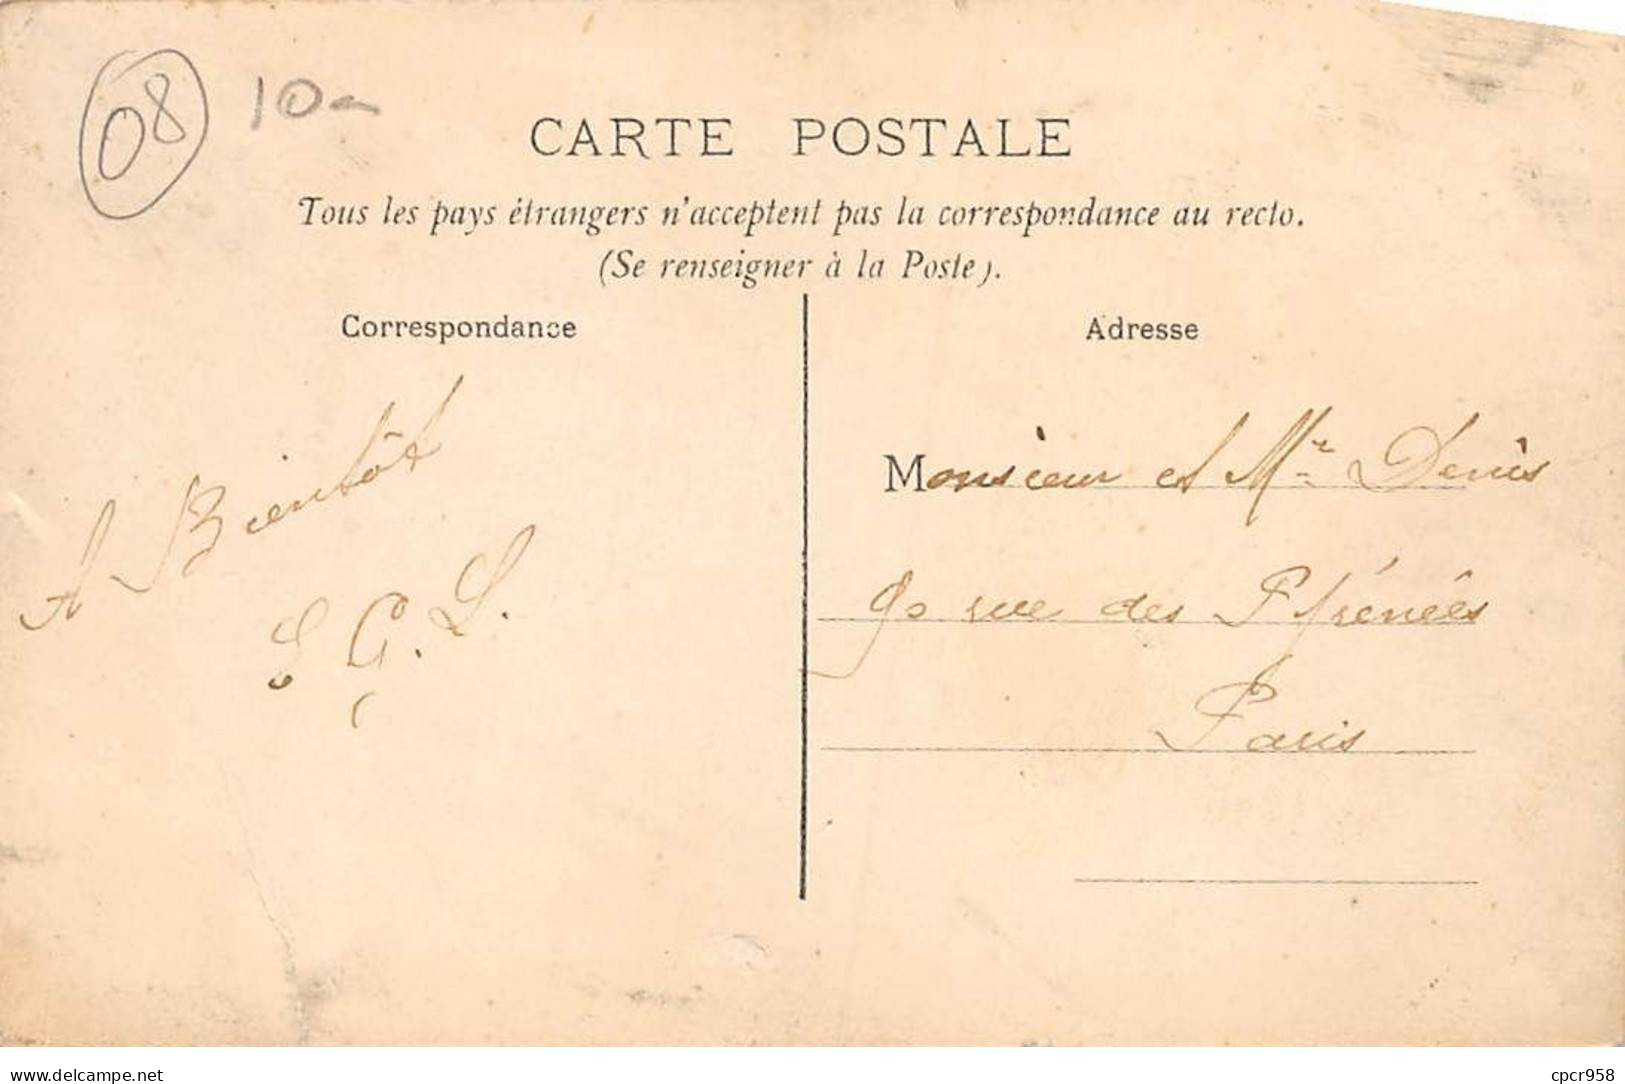 08 10
CARTE POSTALE
Tous les pays étrangers n'acceptent pas la correspondance au recto.
(Se renseigner à la Poste).
Correspondance
Adresse
A Bientôt
Monsieur et Mr Denis
90 rue des Pyrénées
Paris
www.delcampe.net
cpcr958